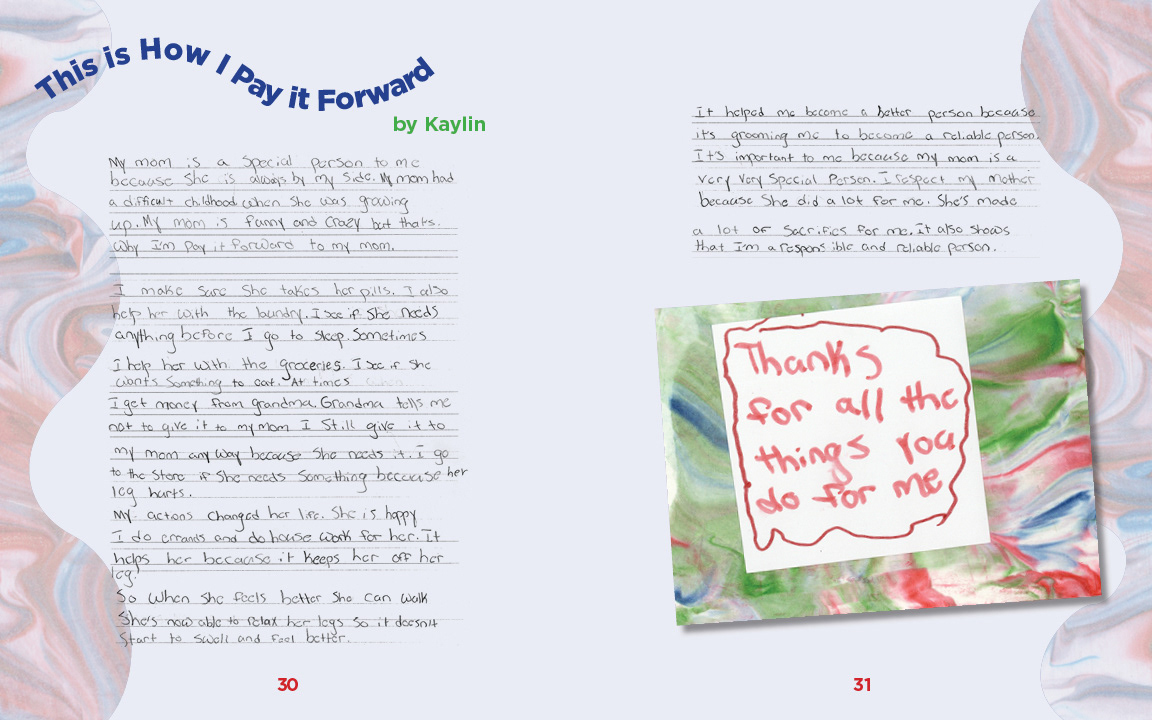 This is How I Pay it Forward
by Kaylin
My mom is a Special person to me
because She is always by my side. My mom had
a difficult childhood when She was growing
up. My mom is funny and Crazy but thats.
Why I'm Pay it forward to my mom.
I make Sure She takes her pills. I also
help her with the laundry. I see if She needs
anything before I go to Sleep. Sometimes
I help her with the groceries. I see if She
wants Something to eat. At times
I get money from grandma. Grandma tells me
not to give it to my mom I Still give it to
my mom any way because She needs it. I go
to the Store if She needs Something because her
leg hurts.
My actions Changed her life. She is happy
I do errands and do house work for her. It
helps her because it Keeps her off her
leg.
So when She feels better She can walk
She's now able to relax her legs So it doesn't
Start to Swell and feel better.
30
It helped me become a better person because
it's grooming me to become a reliable person.
It's important to me because my mom is a
very very Special Person. I respect my Mother
because She did a lot for me. She's made
a lot of Sacrifics for me. It also Shows
that I'm a responsible and reliable person.
Thanks
for all the
things you
do for me
31